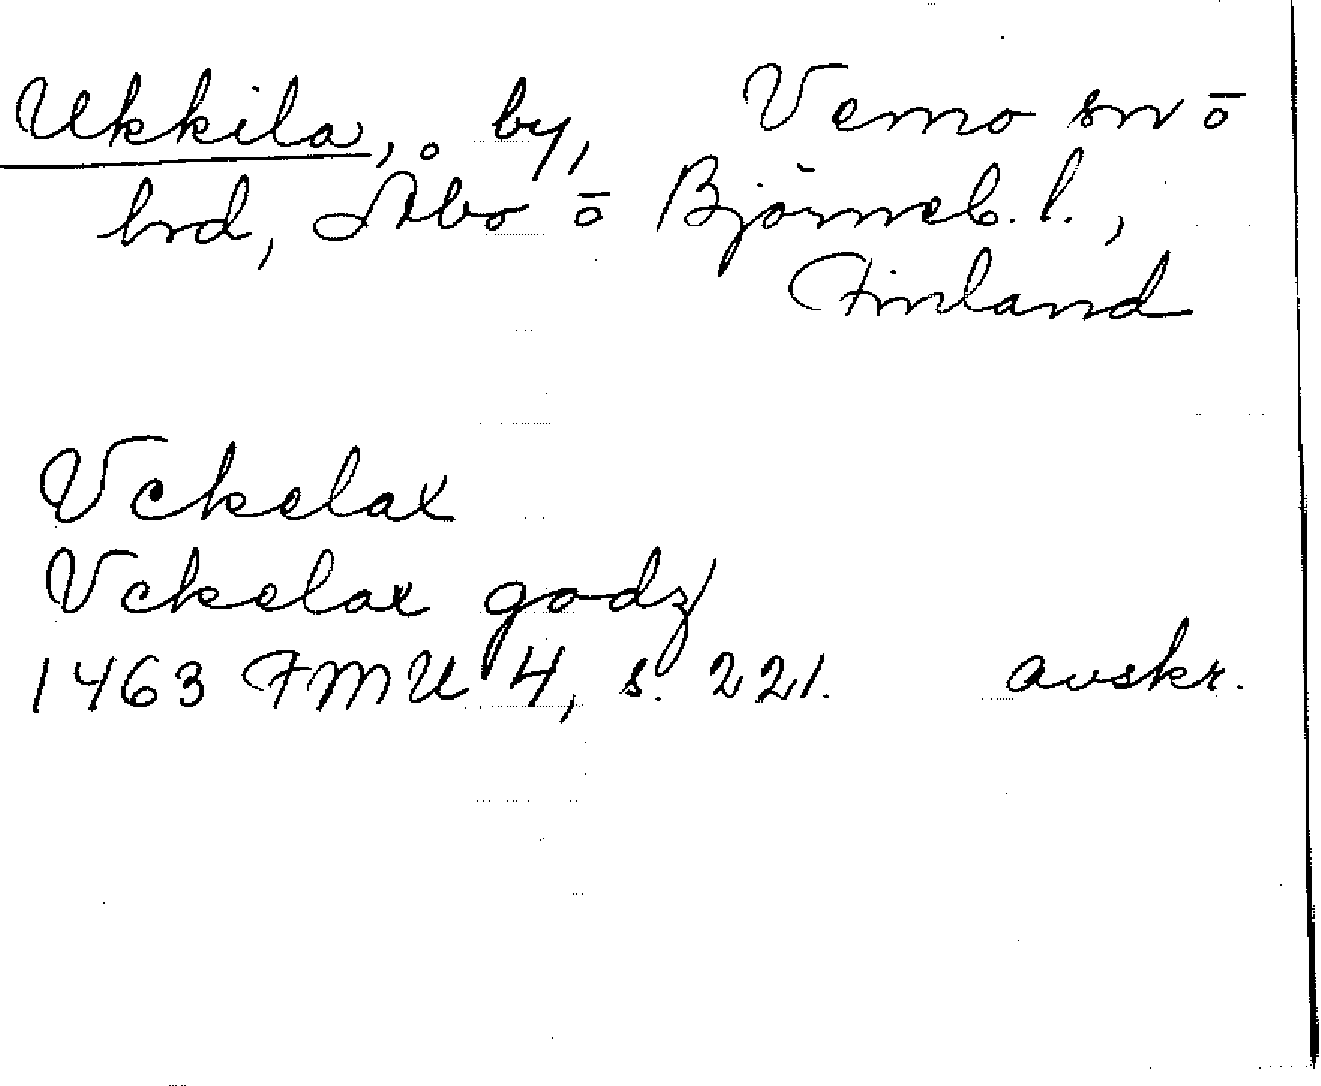 Ukkila, by, Vemo sn o
hrd, Åbo o Björneb. l.,
Finland
Vckelax
Vckelax godz
1463 FMU 4, s. 221. avskr.